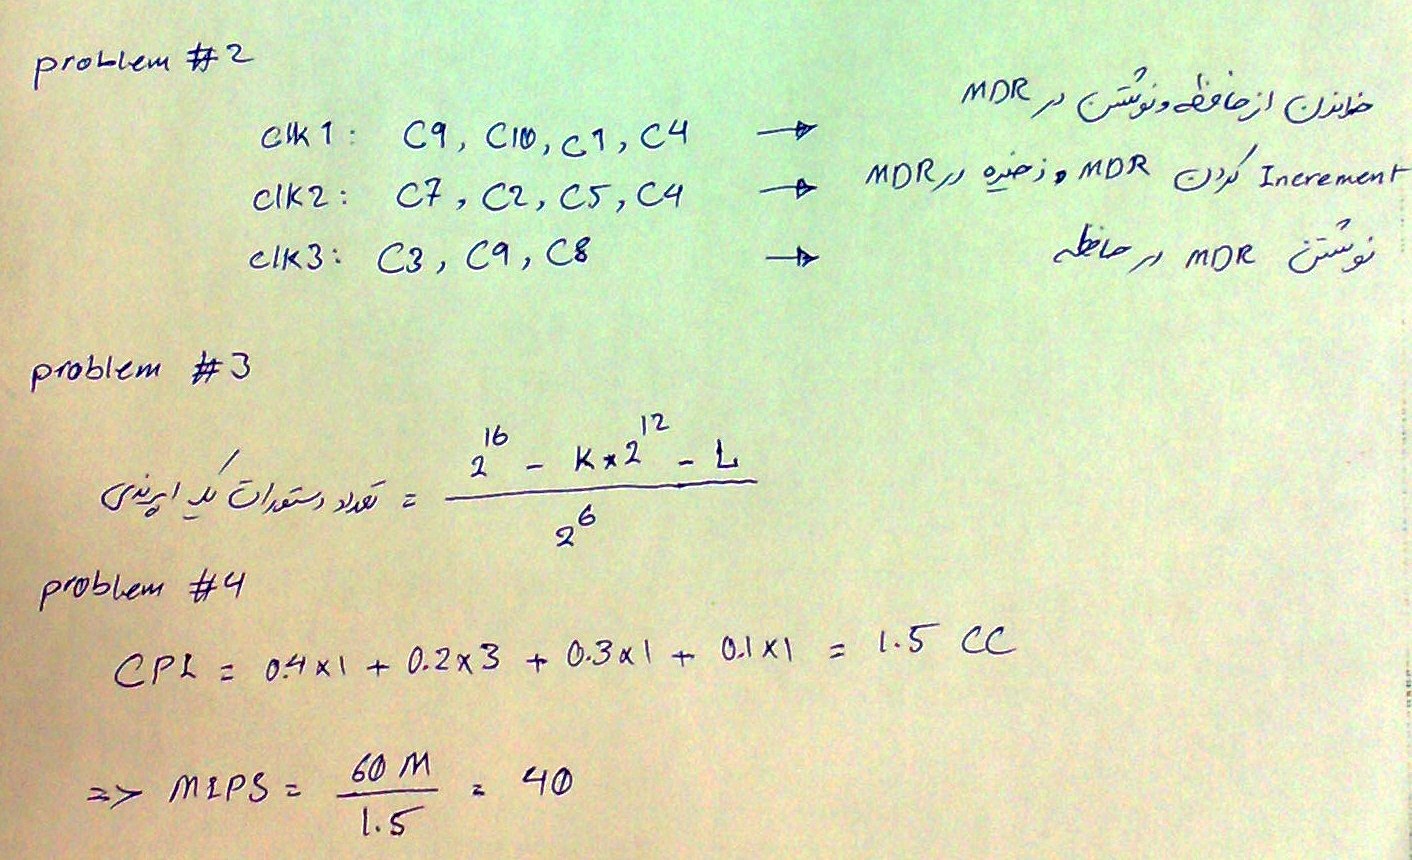 problem #2
clk1: C9, C10, C1, C4 → خواندن از حافظه و نوشتن در MDR
clk2: C7, C2, C5, C4 → Increment کردن MDR و ذخیره در MDR
clk3: C3, C9, C8 → نوشتن MDR در حافظه
problem #3
تعداد دستورات یک اپرندی = (2^16 - K*2^12 - L) / 2^6
problem #4
CPI = 0.4x1 + 0.2x3 + 0.3x1 + 0.1x1 = 1.5 CC
=> MIPS = 60 M / 1.5 = 40